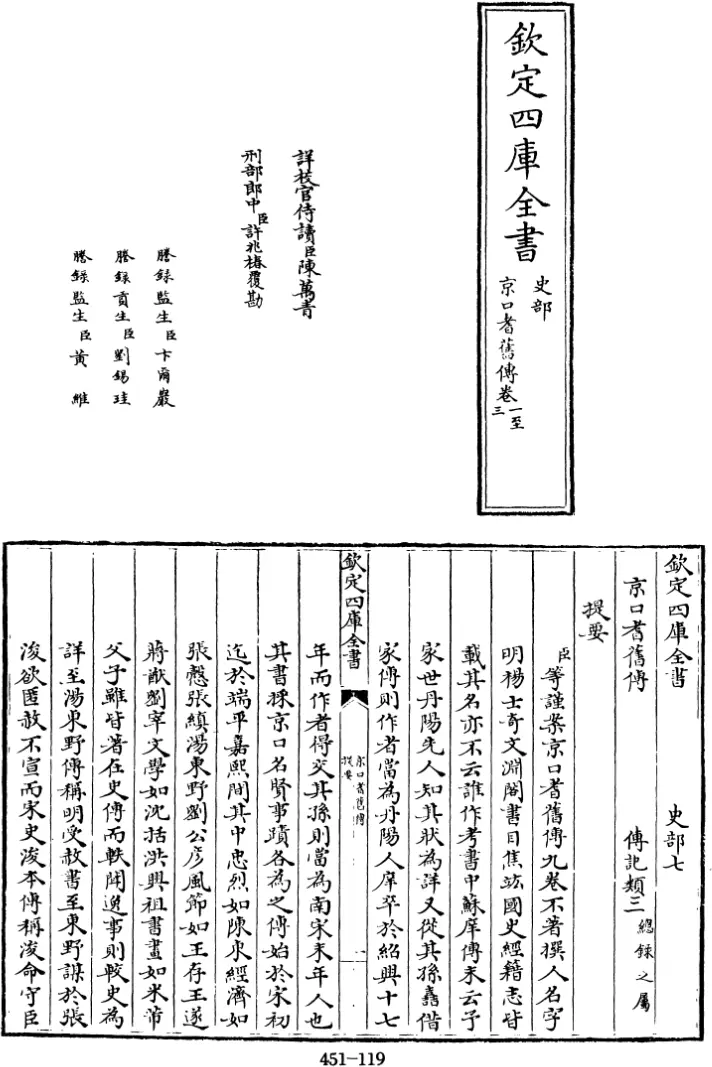 欽定四庫全書
史部
京口耆舊傳卷一至三
詳校官侍讀臣陳萬青
刑部郎中臣許兆椿覆勘
謄錄監生臣卞爾巖
謄錄貢生臣劉錫珪
謄錄監生臣黃維
欽定四庫全書 史部七
京口耆舊傳 傳記類三總錄之屬
提要
臣等謹案京口耆舊傳九卷不著撰人名字
明楊士奇文淵閣書目焦竑國史經籍志皆
載其名亦不云誰作考書中蘇庠傳末云予
家世丹陽先人知其狀為詳又從其孫嘉借
家傳則作者當為丹陽人庠卒於紹興十七
欽定四庫全書
京口耆舊傳
提要
一
年而作者得交其孫則當為南宋末年人也
其書採京口名賢事蹟各為之傳始於宋初
迄於端平嘉熙間其中忠烈如陳東經濟如
張慤張縝湯東野劉公彦風節如王存王遂
蔣猷劉宰文學如沈括洪興祖書畫如米芾
父子雖皆著在史傳而軼聞逸事則較史為
詳至湯東野傳稱明受赦書至東野謀於張
浚欲匿赦不宣而宋史浚本傳稱浚命守臣
451-119